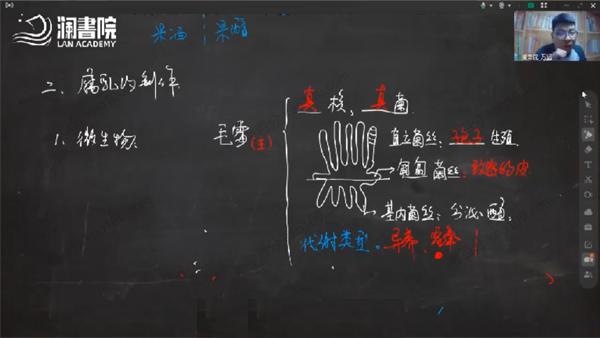 澜書院
LAN ACADEMY
果酒 果醋
二、腐乳的制作
1、微生物: 毛霉(主)
真核、真菌
直立菌丝: 孢子生殖
匍匐菌丝: 致密的皮
基内菌丝: 分泌酶.
代谢类型. 异养、需氧